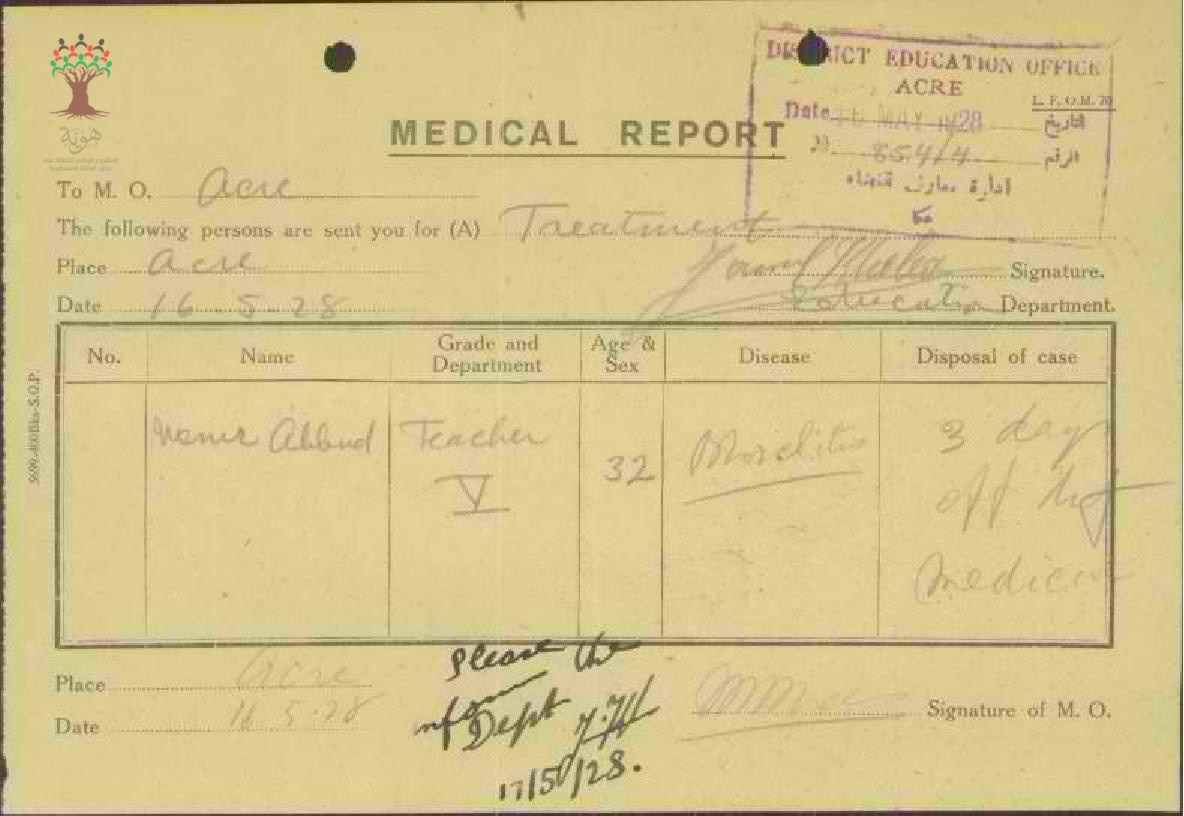 هوية
DISTRICT EDUCATION OFFICE
ACRE
L. F. O. M. 70
Date 16 MAY 1928 التاريخ
No 854/4 الرقم
ادارة معارف قضاء
عكا
MEDICAL REPORT
To M. O. Acre
The following persons are sent you for (A) Treatment
Place Acre
Signature.
Date 16.5.28
Education Department.
No. Name Grade and Department Age & Sex Disease Disposal of case
Abbud Teacher V 32 3 day
off
medicine
5699-400 Bks-S.O.P.
Place Acre
Date 16.5.28
Signature of M. O.
Please
inform the
Dept
17/5/28.